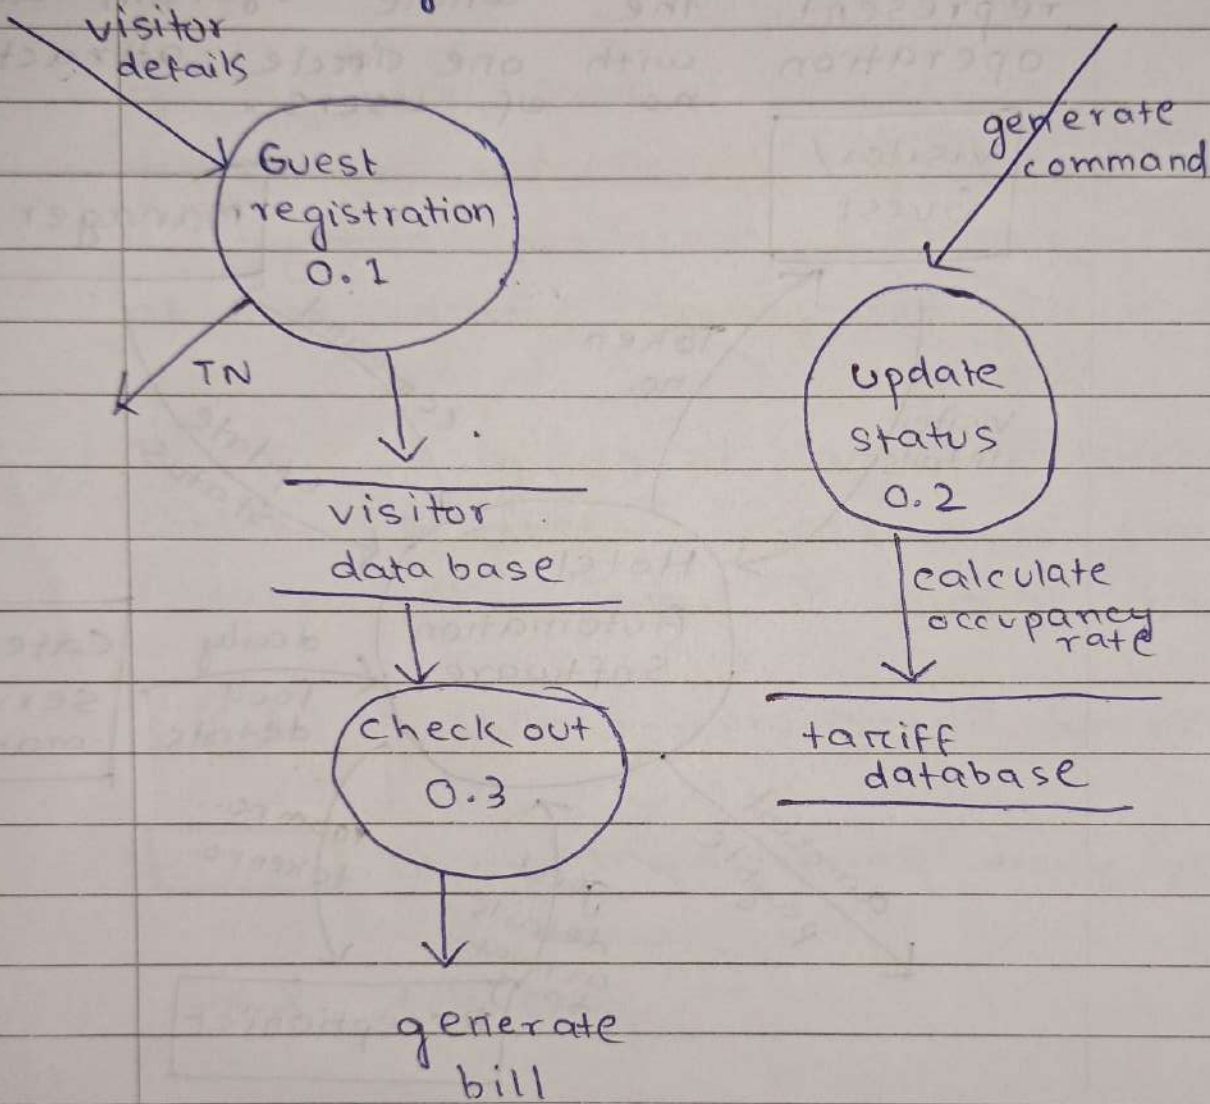 visitor
details
Guest
registration
0.1
TN
visitor
data base
check out
0.3
generate
bill
generate
command
update
status
0.2
calculate
occupancy
rate
tariff
database